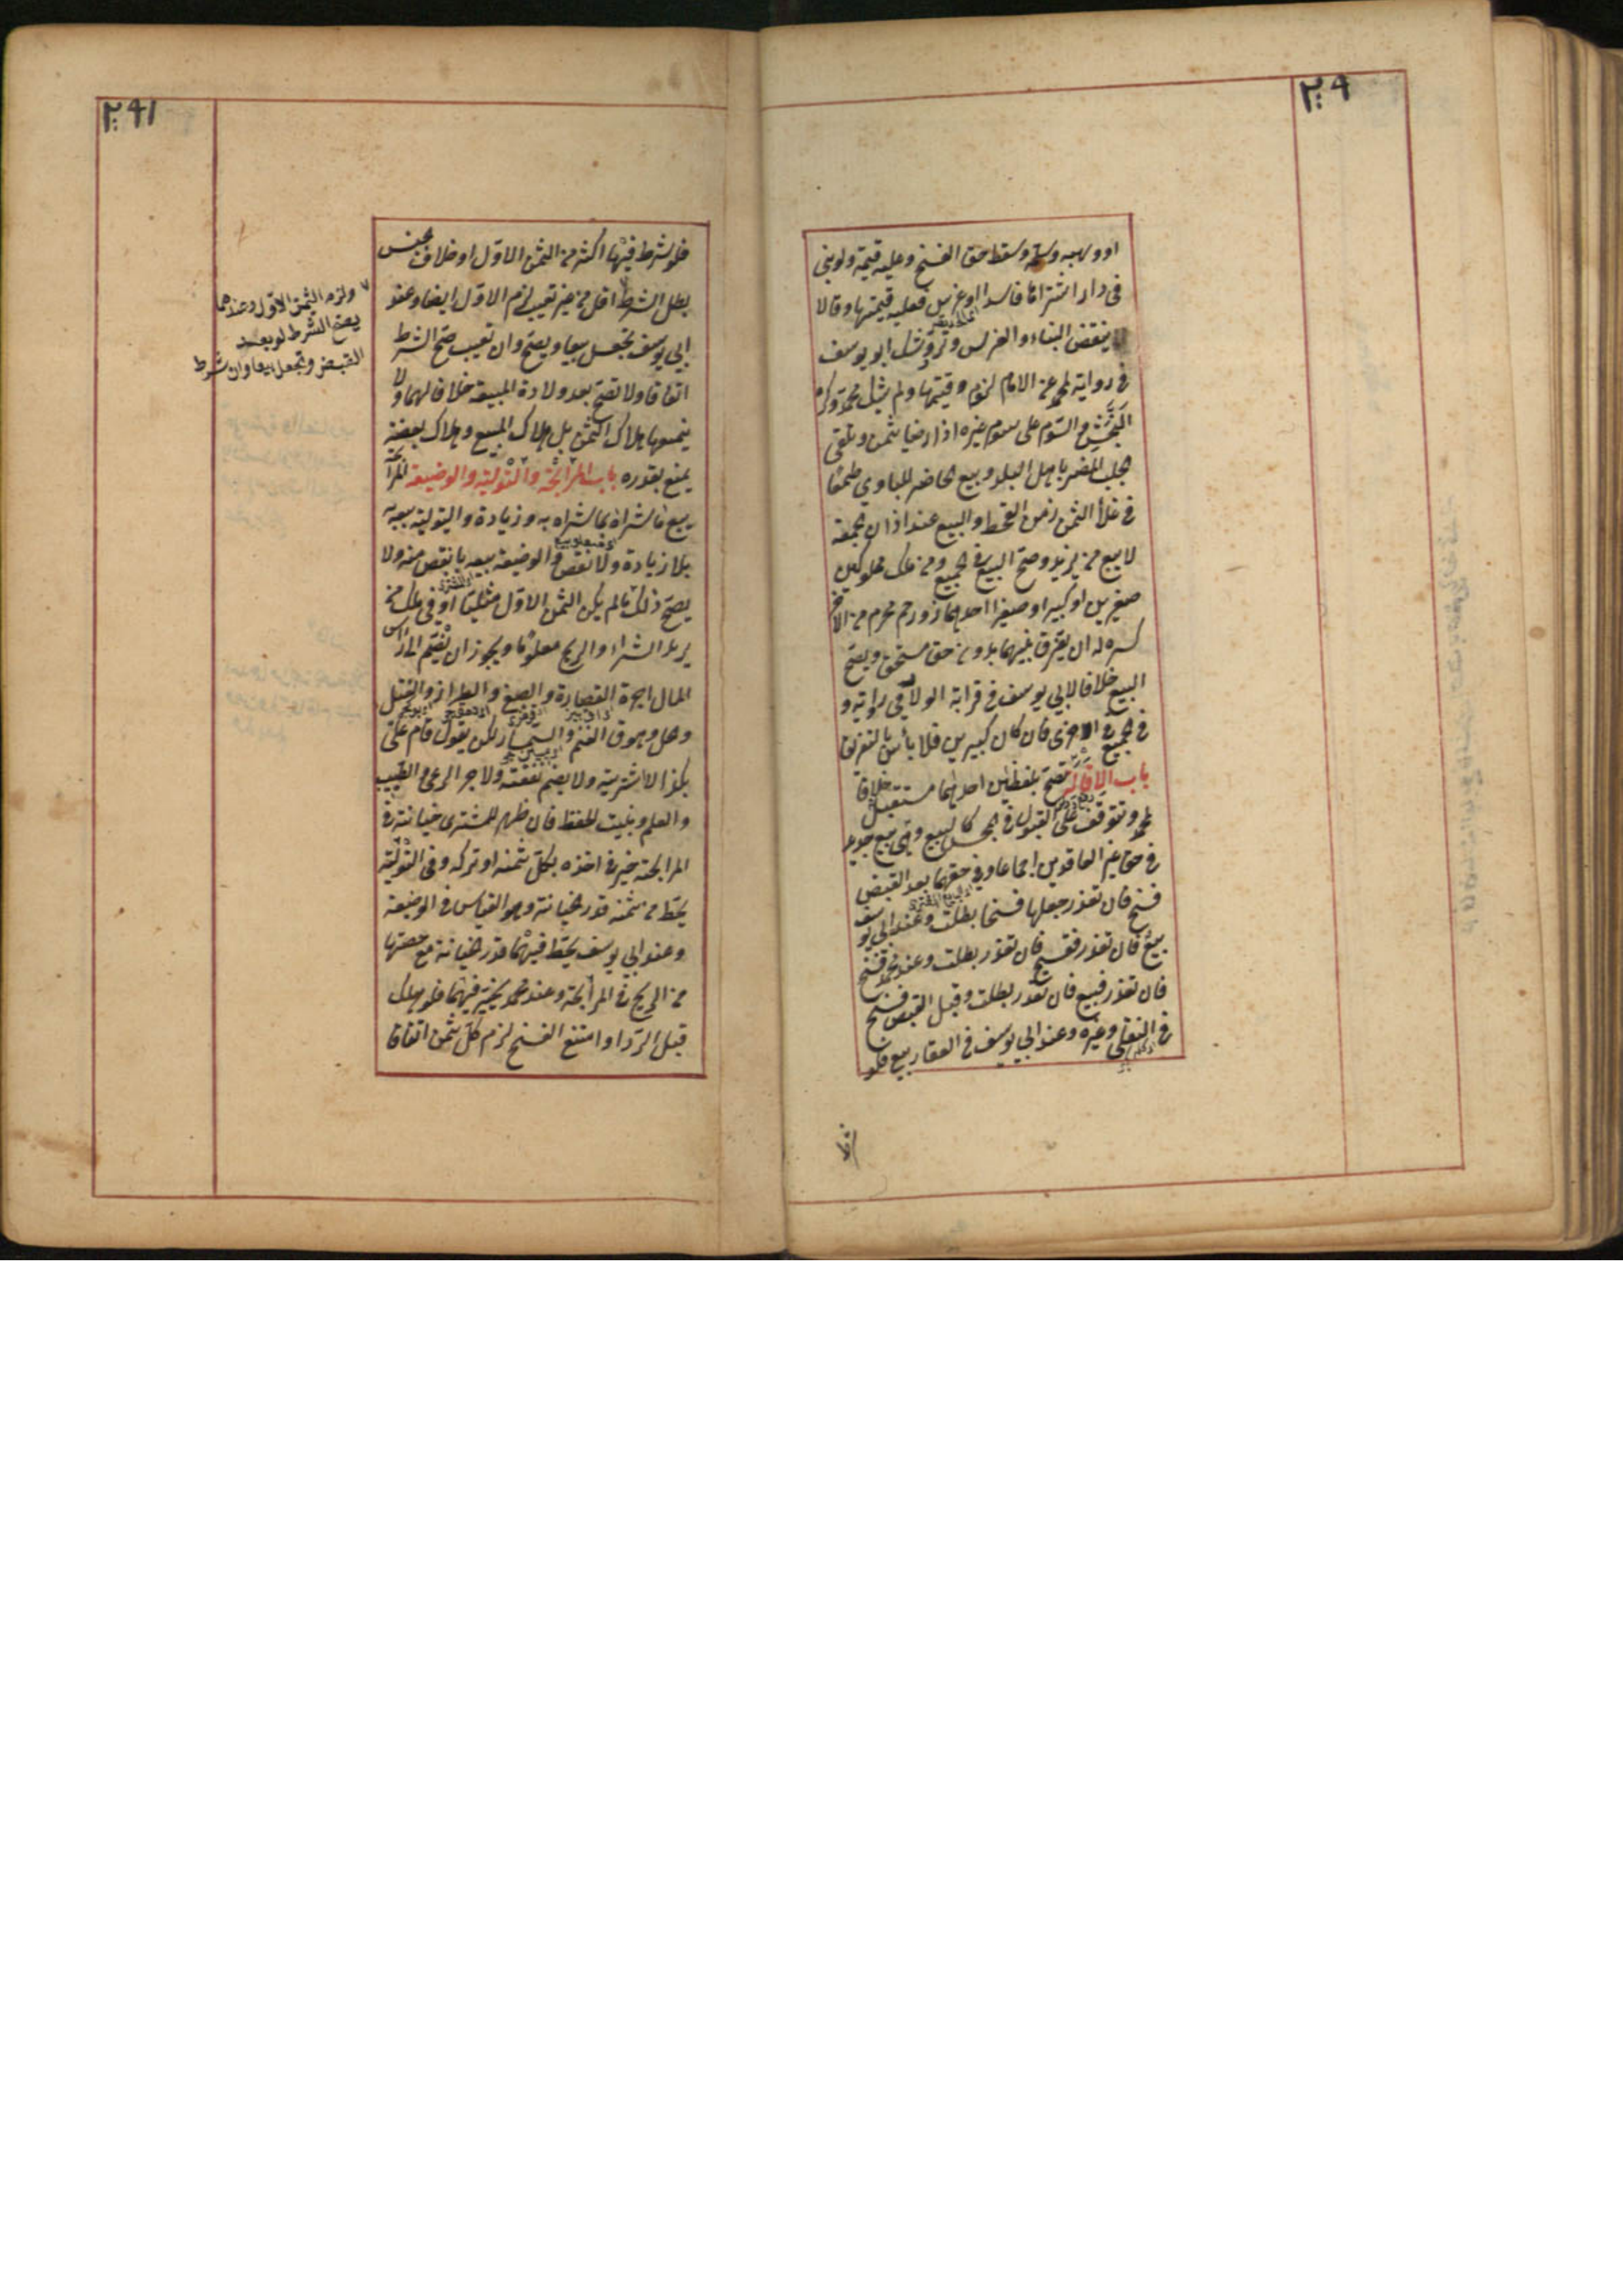 ٢٩٠
او وهبه وسلمه وسقط حق الفسخ وعليه قيمته ولو بنى
فى دار اشتراها فاسدا او غرس فعليه قيمتها وقالا
ينقض البناء والغرس وترد وشك ابو يوسف
فى رواية محمد عن الامام لزوم قيمتها ولم يشك محمد وكره
النجش والسوم على سوم غيره اذا رضيا بثمن وتلقى
الجلب المضر باهل البلد وبيع الحاضر للبادي طمعا
فى غلا الثمن زمن القحط والبيع عند اذان الجمعة
لا بيع من يزيد وصح البيع فى الجميع ومن ملك مملوكين
صغيرين او كبيرا وصغيرا احدهما ذو رحم محرم من الاخر
كره له ان يفرق بينهما بدون حق مستحق ويصح
البيع خلافا لابي يوسف فى قرابة الولاد فى رواية و
فى الجميع فى اخرى فان كان كبيرين فلا بأس بالتفريق
باب الاقالة تصح بلفظين احدهما مستقبل خلافا
لمحمد وتتوقف على القبول فى المجلس كالبيع وهى بيع جديد
فى حق غير العاقدين اجماعا وفى حقهما بعد القبض
فسخ فان تعذر جعلها فسخا بطلت وعند ابي يوسف
بيع فان تعذر ففسخ فان تعذر بطلت وعند محمد فسخ
فان تعذر فبيع فان تعذر بطلت وقبل القبض فسخ
فى النقلي وغيره وعند ابي يوسف فى العقار بيع فلو
شرط
٢٩١
فلو شرط فيها اكثر من الثمن الاول او خلاف جنس
بطل الشرط اقل من غير تعيب لزم الاول ايضا وعند
ابي يوسف تجعل بيعا ويصح وان تعيب صح الشرط
اتفاقا ولا تصح بعد ولادة المبيعة خلافا لهما ولا
يمنعها هلاك الثمن بل هلاك المبيع وهلاك بعضه
يمنع بقدره باب المرابحة والتولية والوضيعة المرابحة
بيع ما شراه بما شراه به وزيادة والتولية بيعه
بلا زيادة ولا نقص والوضيعة بيعه بانقص منه ولا
يصح ذلك ما لم يكن الثمن الاول مثليا او فى ملك من
يريد الشراء والربح معلوما ويجوز ان يضم الى رأس
المال اجرة القصارة والصبغ والطراز والفتل
وحمل وسوق الغنم والسمسار لكن يقول قام علي
بكذا لا اشتريته ولا يضم نفقته ولا اجر الراعي والطبيب
والعلم وبيت الحفظ فان ظهر للمشترى خيانة فى
المرابحة خير فى اخذه بكل ثمنه او تركه وفى التولية
يحط من ثمنه قدر الخيانة وهو القياس فى الوضيعة
وعند ابي يوسف يحط فيهما قدر الخيانة مع حصتها
من الربح فى المرابحة وعند محمد يخير فيهما فلو هلك
قبل الرد او امتنع الفسخ لزم كل الثمن اتفاقا
ولزم الثمن الاول وعندهما
يصح الشرط لو بعد
القبض وتجعل بيعا وان شرط